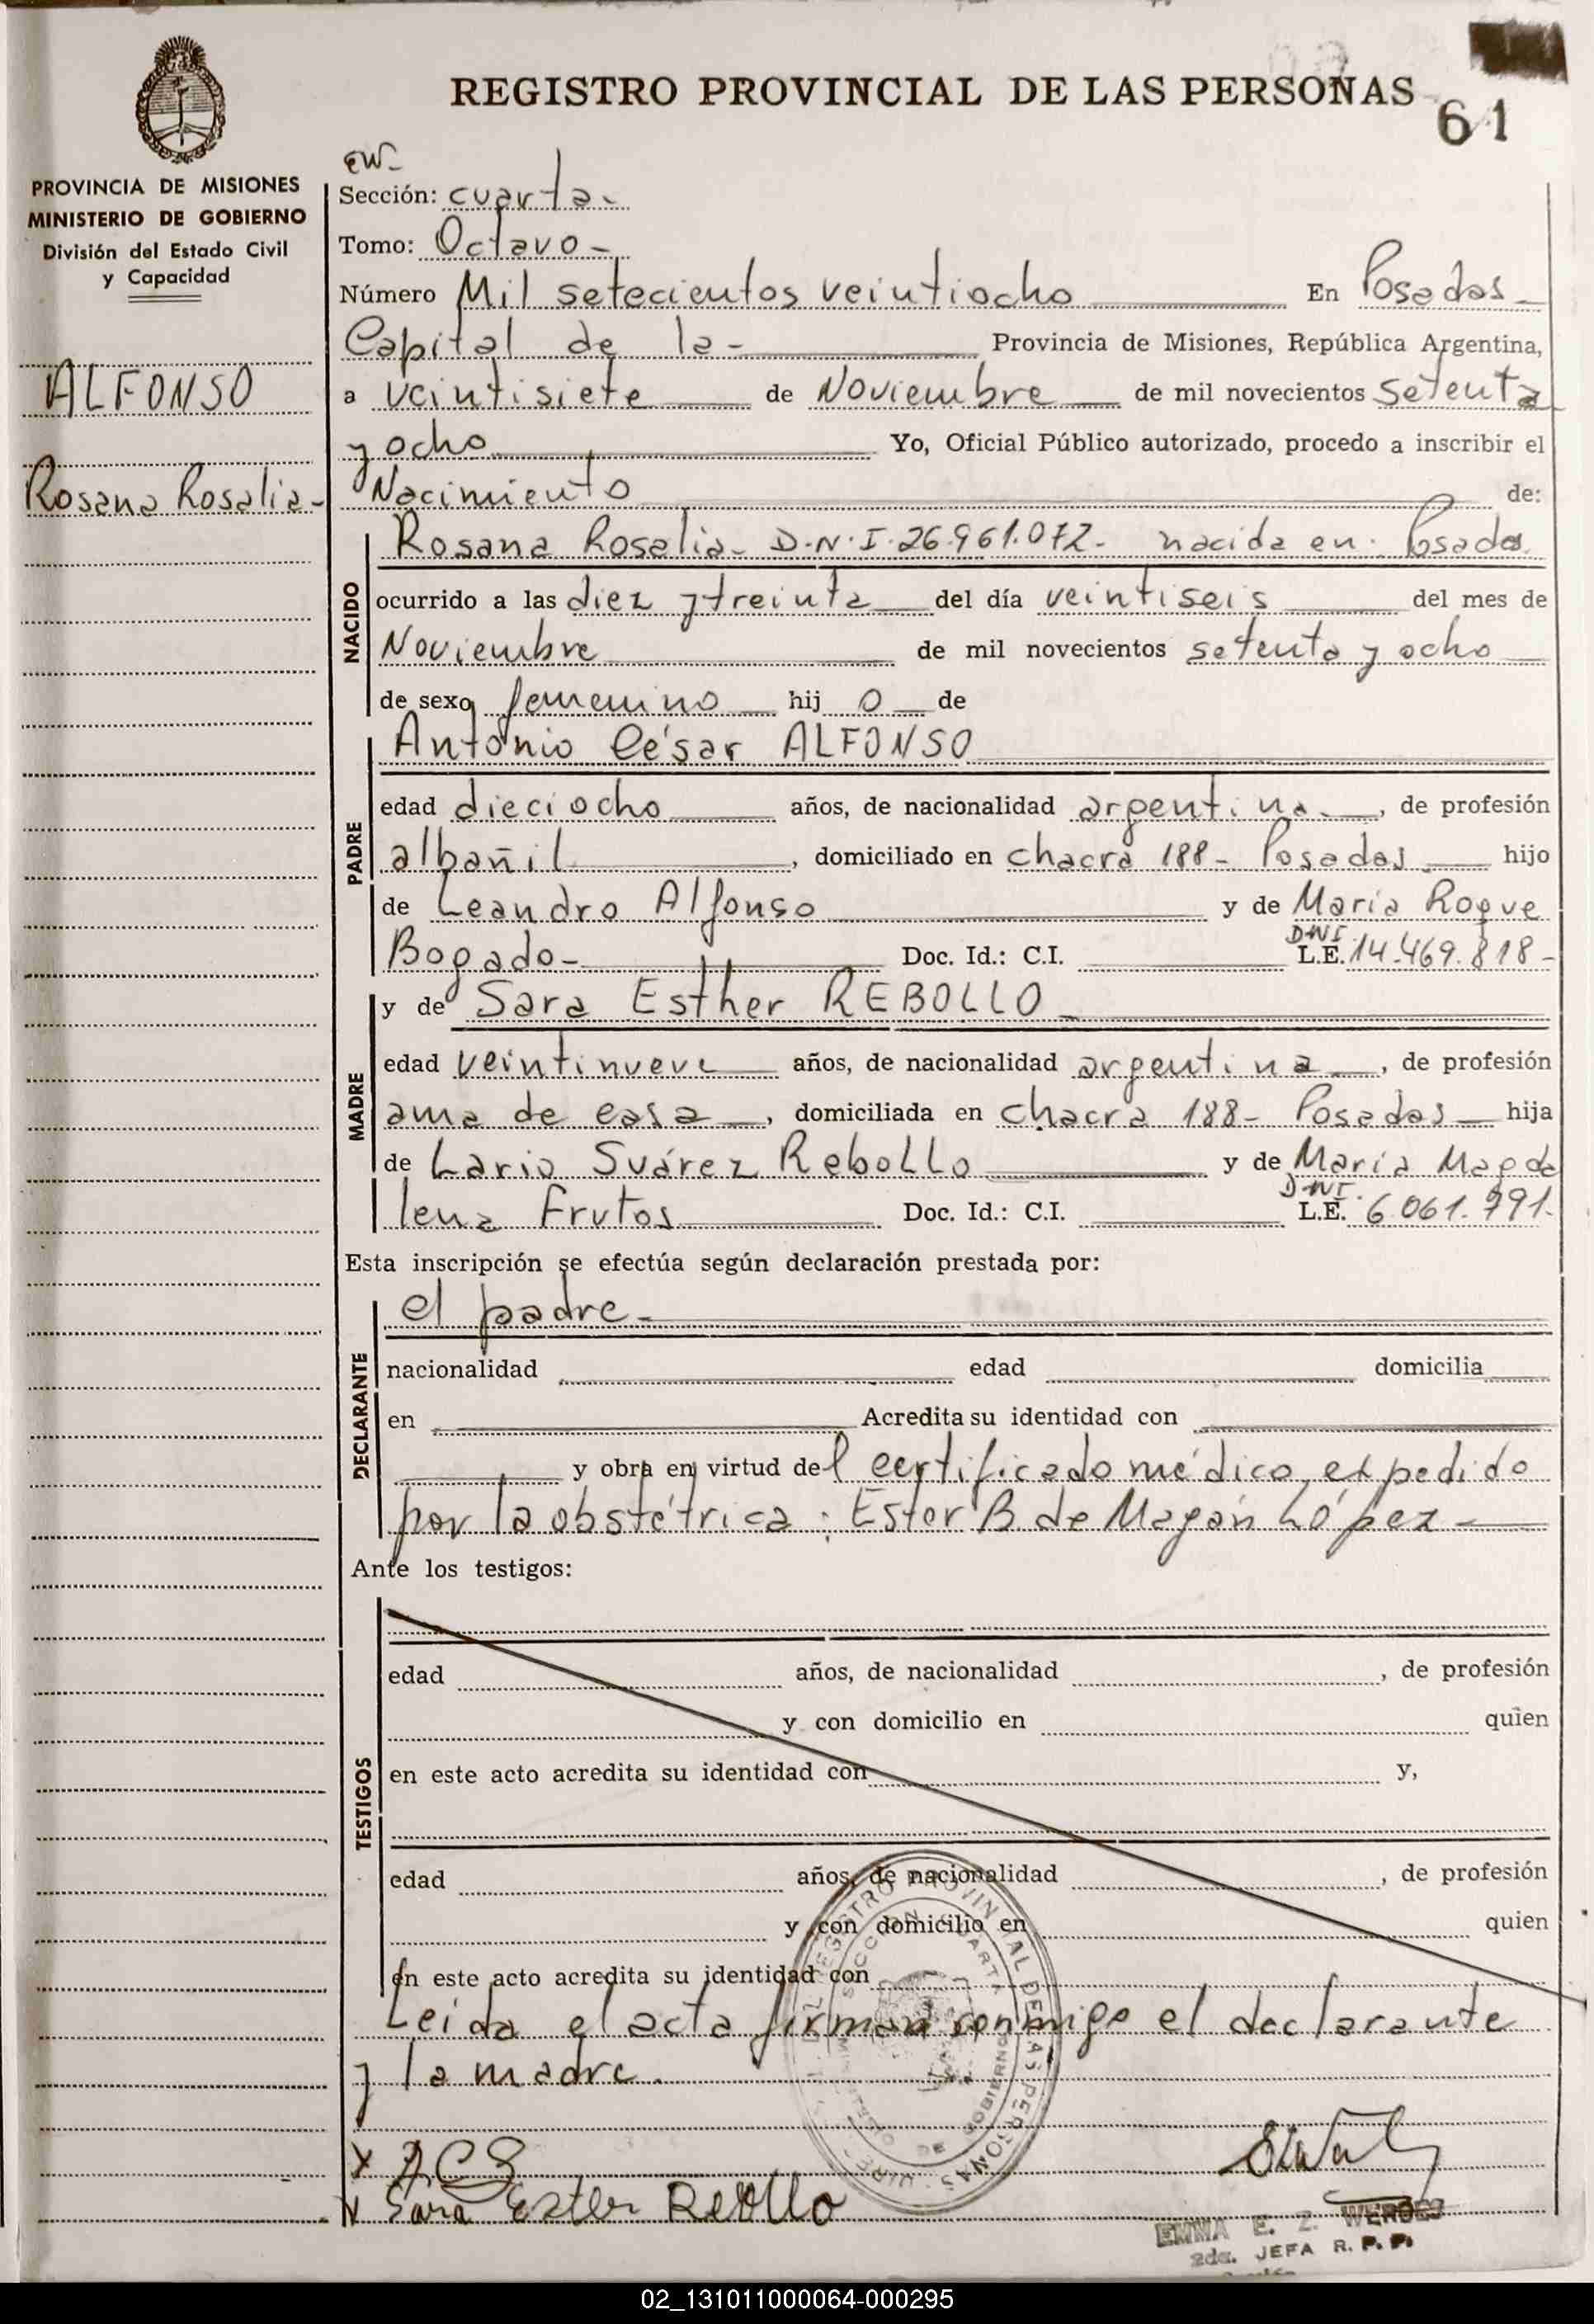 REGISTRO PROVINCIAL DE LAS PERSONAS
61
PROVINCIA DE MISIONES
MINISTERIO DE GOBIERNO
División del Estado Civil
y Capacidad
ALFONSO
Rosana Rosalia-
EW-
Sección: cuarta-
Tomo: Octavo-
Número Mil setecientos veintiocho En Posadas
Capital de la- Provincia de Misiones, República Argentina,
a veintisiete de Noviembre de mil novecientos setenta
y ocho Yo, Oficial Público autorizado, procedo a inscribir el
Nacimiento de:
NACIDO
Rosana Rosalia- D.N.I.26.961.072- nacida en: Posadas
ocurrido a las diez y treinta del día veintiseis del mes de
Noviembre de mil novecientos setenta y ocho
de sexo femenino hij o de
PADRE
Antonio César ALFONSO
edad dieciocho años, de nacionalidad argentina, de profesión
albañil, domiciliado en chacra 188- Posadas hijo
de Leandro Alfonso y de María Roque
Bogado- Doc. Id.: C.I. DNI L.E. 14.469.818-
MADRE
y de Sara Esther REBOLLO
edad veintinueve años, de nacionalidad argentina, de profesión
ama de casa, domiciliada en chacra 188- Posadas hija
de Lario Suárez Rebollo y de María Magda
lena Frutos Doc. Id.: C.I. DNI. L.E. 6.061.991.
Esta inscripción se efectúa según declaración prestada por:
DECLARANTE
el padre-
nacionalidad edad domicilia
en Acredita su identidad con
y obra en virtud del certificado médico expedido
por la obstétrica: Ester B. de Magán López-
Ante los testigos:
TESTIGOS
edad años, de nacionalidad , de profesión
y con domicilio en quien
en este acto acredita su identidad con y,
edad años, de nacionalidad , de profesión
y con domicilio en quien
en este acto acredita su identidad con
Leida el acta firman conmigo el declarante
y la madre.
x ACS
x Sara Ester Rebollo
EMMA E. Z. WERDES
2da. JEFA R. P. P.
02_131011000064-000295